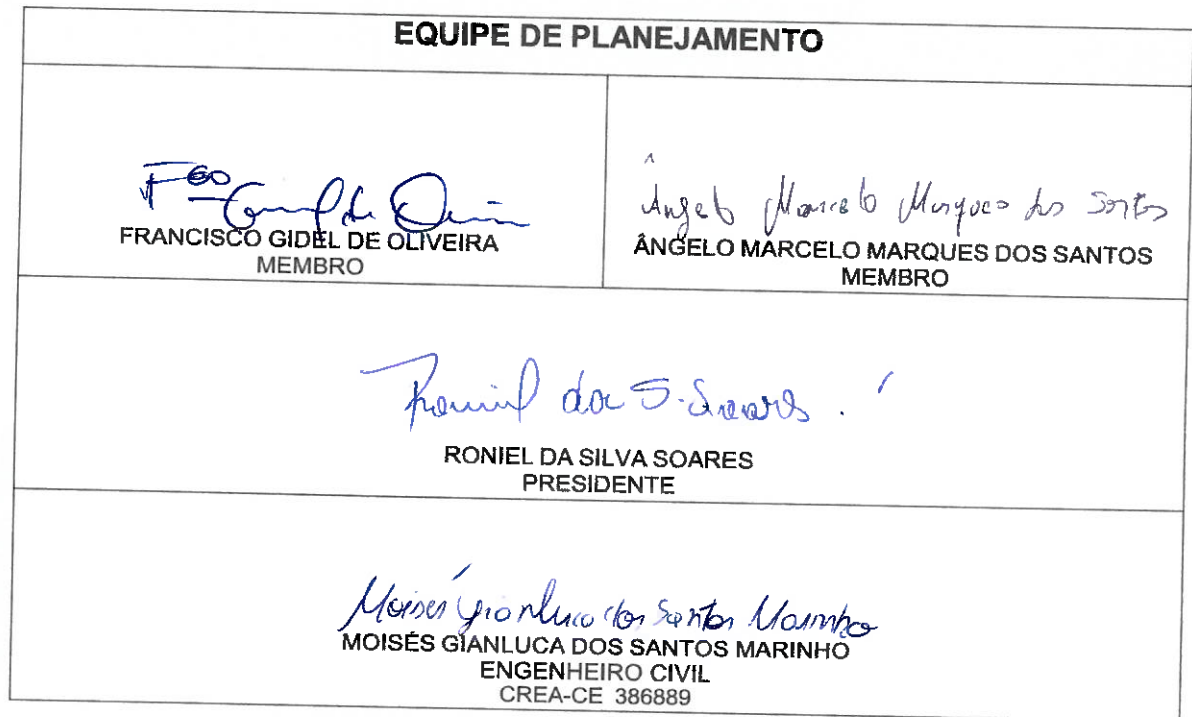 EQUIPE DE PLANEJAMENTO
Fco Gidel de Oliveira
FRANCISCO GIDEL DE OLIVEIRA
MEMBRO
Ângelo Marcelo Marques dos Santos
ÂNGELO MARCELO MARQUES DOS SANTOS
MEMBRO
Roniel da S. Soares.
RONIEL DA SILVA SOARES
PRESIDENTE
Moisés Gianluca dos Santos Marinho
MOISÉS GIANLUCA DOS SANTOS MARINHO
ENGENHEIRO CIVIL
CREA-CE 386889